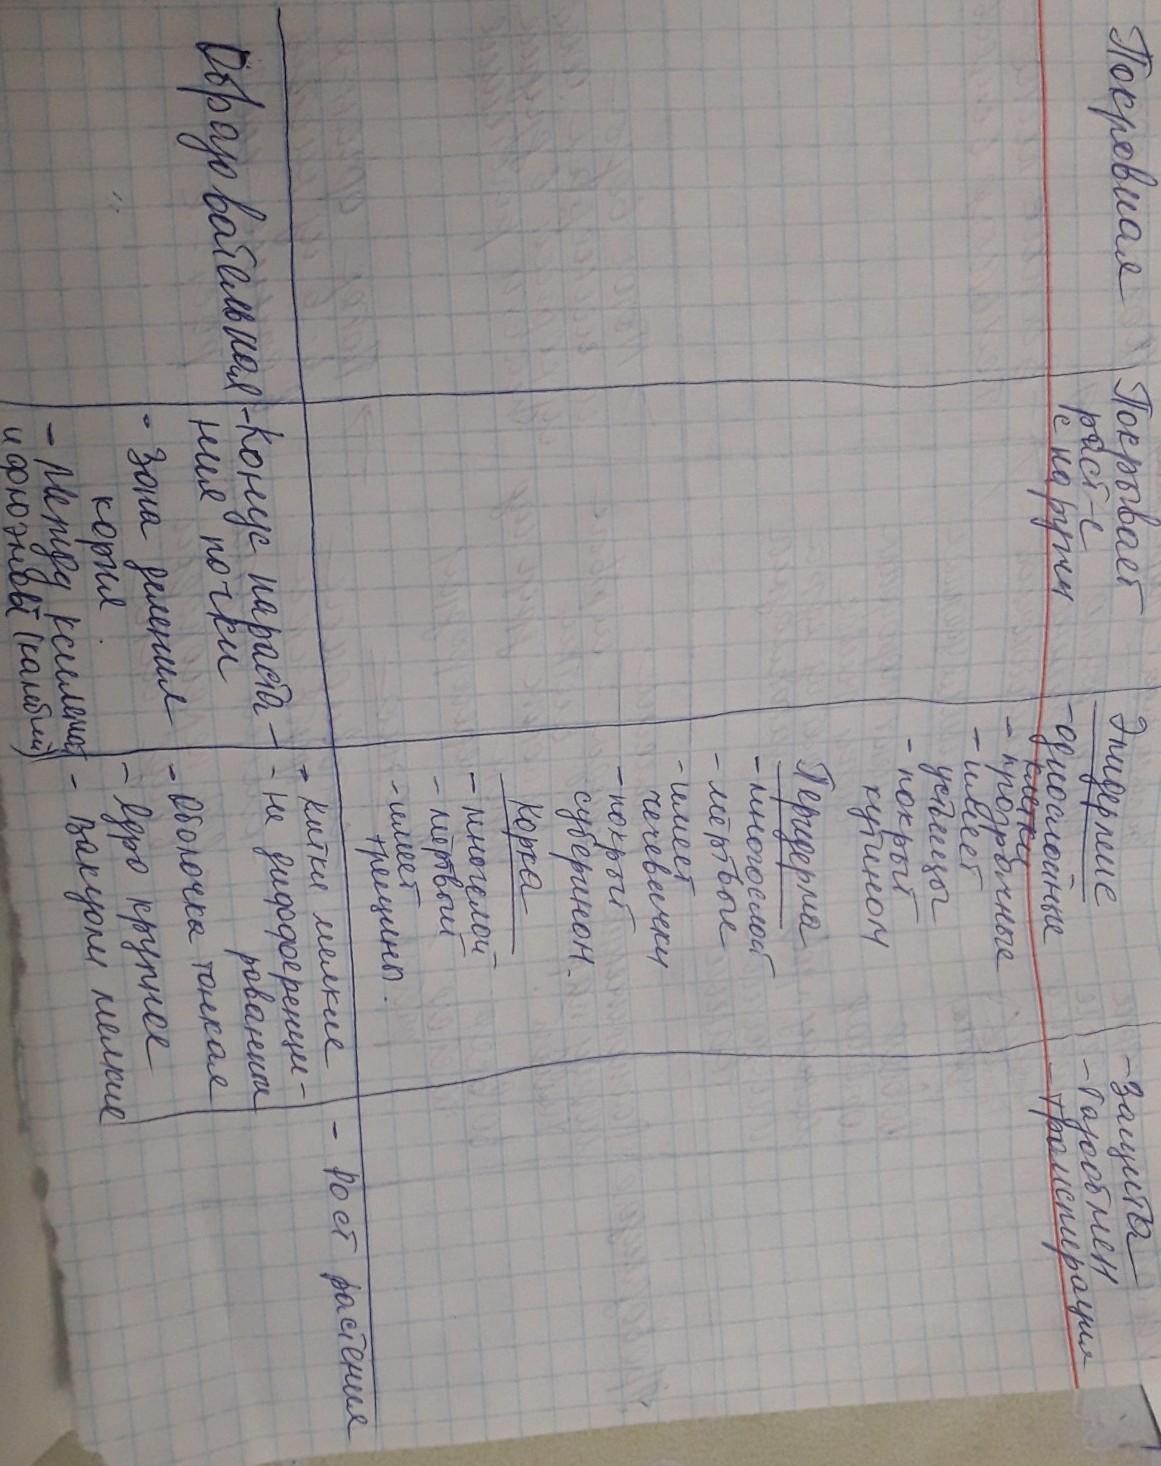 Покровная
Покрывает
раст-е
с наружи
Эпидермис
- однослойные
клетки
- прозрачные
- имеет
устьицы
- покрыт
кутином
Перидерма
- многослой
- мёртвые
- имеет
чечевички
- покрыт
суберином.
Корка
- многослой
- мёртвый
- имеет
трещины.
- Защита
- Газообмен
- Транспирация
Образовательная
- Конус нараста-
ния почки
- Зона деления
корня.
- Между ксилемой
и флоэмой (камбий)
- Клтки мелкие
- не дифференци-
рованны
- Оболочка тонкая
- Ядро крупнее
- Вакуоли мелкие
- Рост растения